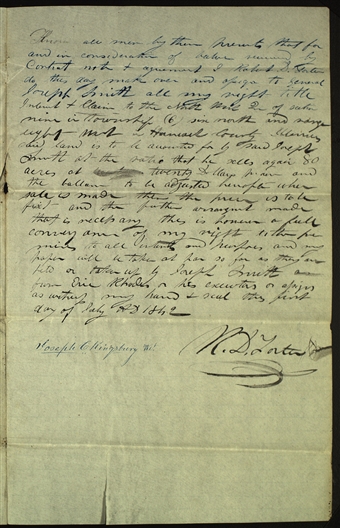 Know all men by these presents that for
and in consideration of value received by
Contract note & agreement I Robert D. Foster
do this day make over and assign to General
Joseph Smith all my right title
Interest & Claim to the North West Qr of section
nine in Township (6) six north and range
eight West in Hancock County Illinois
land is to be accounted for by said Joseph
Smith at the ratio that he sells again 80
acres at twenty Dollars pr acre and
the ballance to be adjusted hereafter when
sale is made then the price is to be
fixed and the further arrangement made
that is necessary this is however a full
conveyance of my right
to all intents and purposes and my
paper will be taken at par so far as they are
held or taken up by Joseph Smith
from Eric Rhodes or his executors or assigns
as witness my hand & seal this first
day of July AD 1842
R. D. Foster
Joseph C Kingsbury